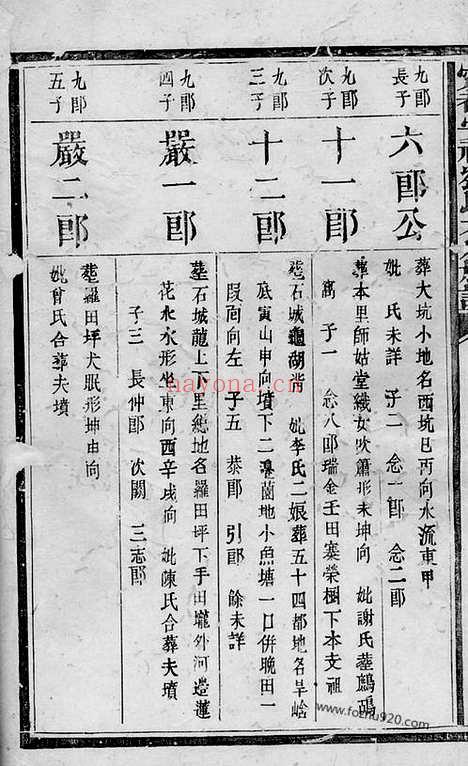 九郎
長子
六郎公
葬大坑小地名西坑巳丙向水流東甲
妣氏未詳 子二 念一郎 念二郎
九郎
次子
十一郎
葬本里師姑堂織女吹簫形未坤向 妣謝氏葬鷓鴣
窩 子一 念八郎瑞金壬田寨榮樹下本支祖
九郎
三子
十二郎
葬石城龜湖 妣李氏二娘葬五十四都地名旱
底寅山申向墳下二 地小魚塘一口併晚田一
段向左 子五 恭郎 引郎 餘未詳
九郎
四子
嚴一郎
墓石城龍上下里總地名羅田坪下手田壠外河邊蓮
花水形坐東向西辛戌向 妣陳氏合葬夫墳
子三 長仲郎 次閼 三志郎
九郎
五子
嚴二郎
葬羅田坪犬眠形坤申向
妣曾氏合葬夫墳
nayona.cn
www.fozhu920.com